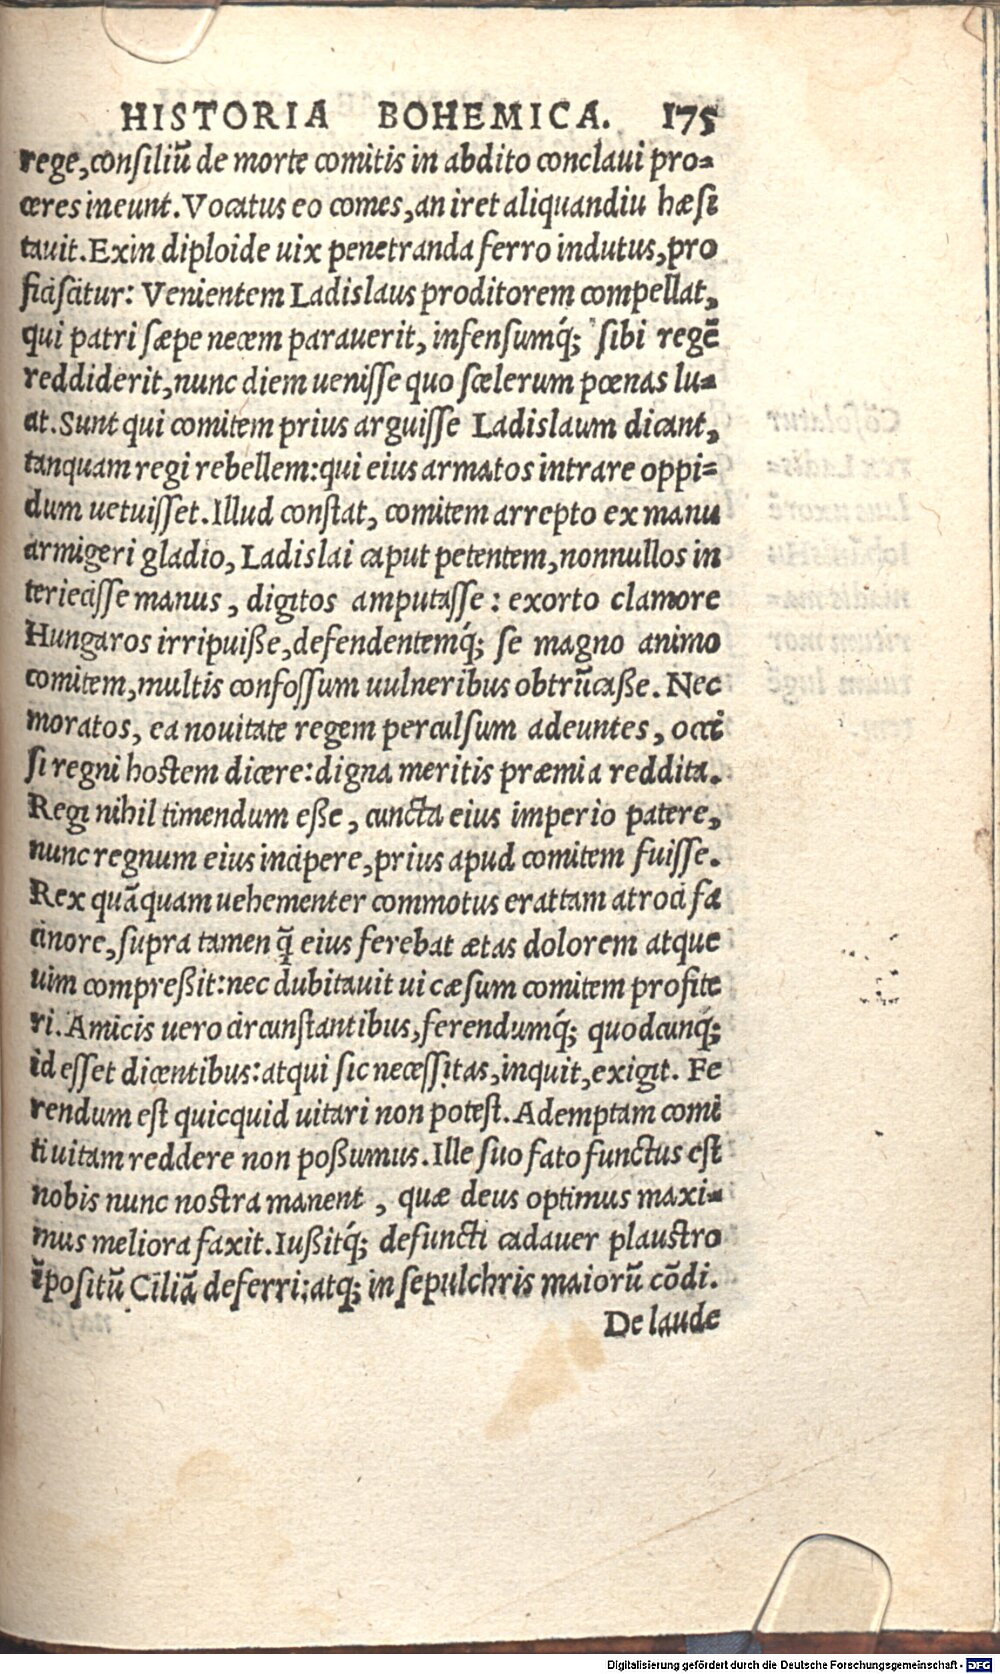 HISTORIA BOHEMICA. 175
rege, consiliū de morte comitis in abdito conclaui pro=
ceres ineunt. Vocatus eo comes, an iret aliquandiu hæsi
tauit. Exin diploide uix penetranda ferro indutus, pro
ficiscitur: Venientem Ladislaus proditorem compellat,
qui patri sæpe necem parauerit, infensumq́; sibi regē
reddiderit, nunc diem uenisse quo scelerum pœnas lu=
at. Sunt qui comitem prius arguisse Ladislaum dicant,
tanquam regi rebellem: qui eius armatos intrare oppi=
dum uetuisset. Illud constat, comitem arrepto ex manu
armigeri gladio, Ladislai caput petentem, nonnullos in
teriecisse manus, digitos amputasse: exorto clamore
Hungaros irripuiße, defendentemq́; se magno animo
comitem, multis confossum uulneribus obtrūcaße. Nec
moratos, ea nouitate regem perculsum adeuntes, occi
si regni hostem dicere: digna meritis præmia reddita.
Regi nihil timendum eße, cuncta eius imperio patere,
nunc regnum eius incipere, prius apud comitem fuisse.
Rex quāquam uehementer commotus erat tam atroci fa
cinore, supra tamen q̄ eius ferebat ætas dolorem atque
uim compreßit: nec dubitauit ui cæsum comitem profite
ri. Amicis uero circunstantibus, ferendumq́; quodcunq́;
id esset dicentibus: atqui sic necessitas, inquit, exigit. Fe
rendum est quicquid uitari non potest. Ademptam comi
ti uitam reddere non poßumus. Ille suo fato functus est
nobis nunc nostra manent, quæ deus optimus maxi=
mus meliora faxit. Iußitq́; defuncti cadauer plaustro
īpositū Ciliā deferri: atq; in sepulchris maiorū cōdi.
De laude
Digitalisierung gefördert durch die Deutsche Forschungsgemeinschaft - DFG